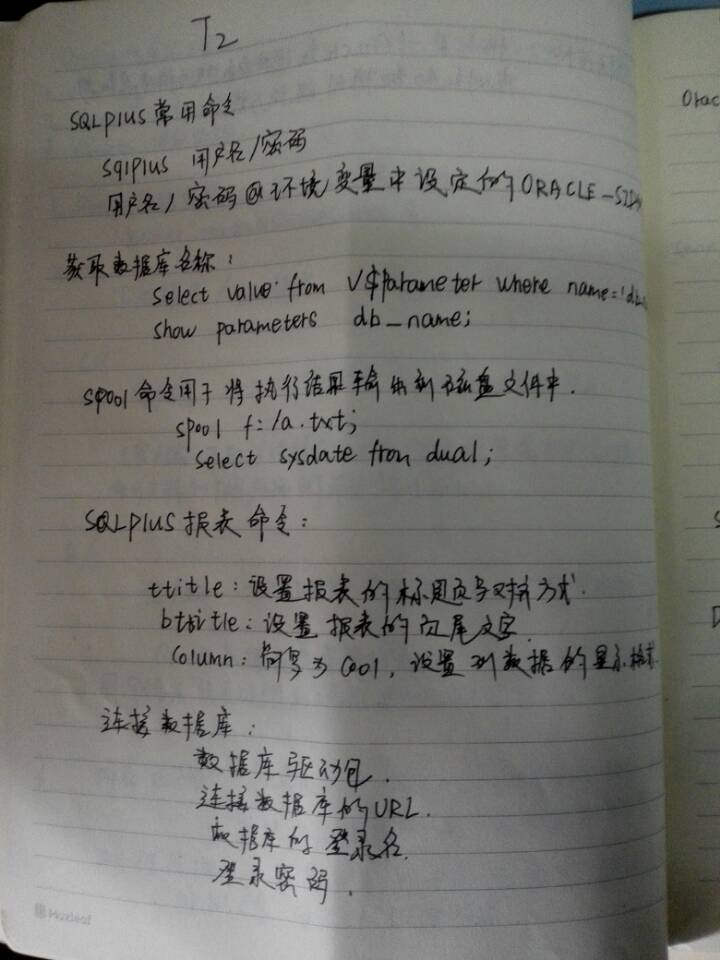 T2
SQLPlus常用命令
sqlplus 用户名/密码
用户名/密码@环境变量中设定的ORACLE-SID
获取数据库名称：
select value from V$Parameter where name='db
show parameters db_name;
spool命令用于将执行结果输出到磁盘文件中.
spool f:/a.txt;
select sysdate from dual;
SQLPlus报表命令：
ttitle：设置报表的标题页与对齐方式.
bttitle：设置报表的页尾文字.
Column：简写为Cool，设置列数据的显示格式.
连接数据库：
数据库驱动包.
连接数据库的URL.
数据库的登录名.
登录密码.
Huxleaf
Orac